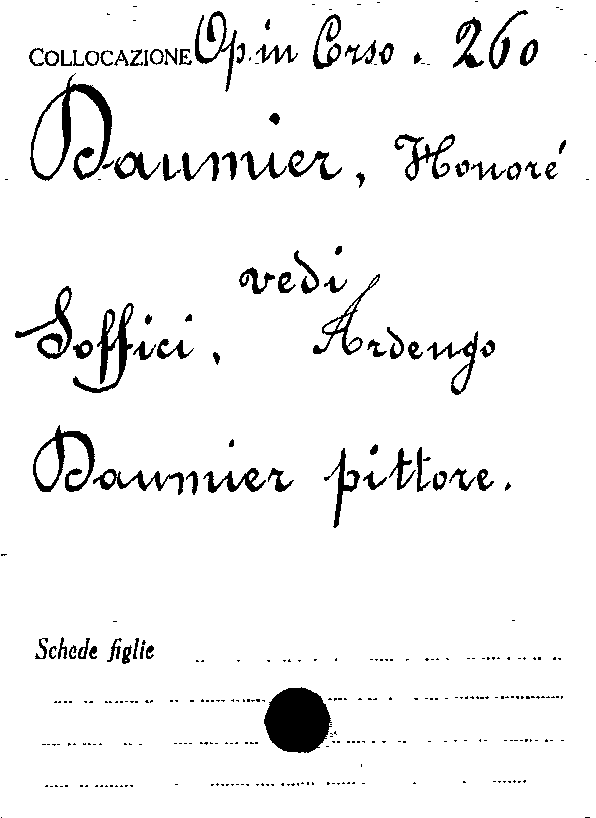 COLLOCAZIONE Op. in Corso. 260
Daumier, Honoré
vedi
Soffici, Ardengo
Daumier pittore.
Schede figlie